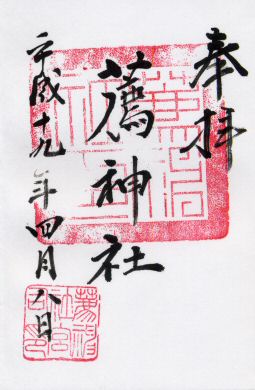 奉拝
薦神社
平成十九年四月八日